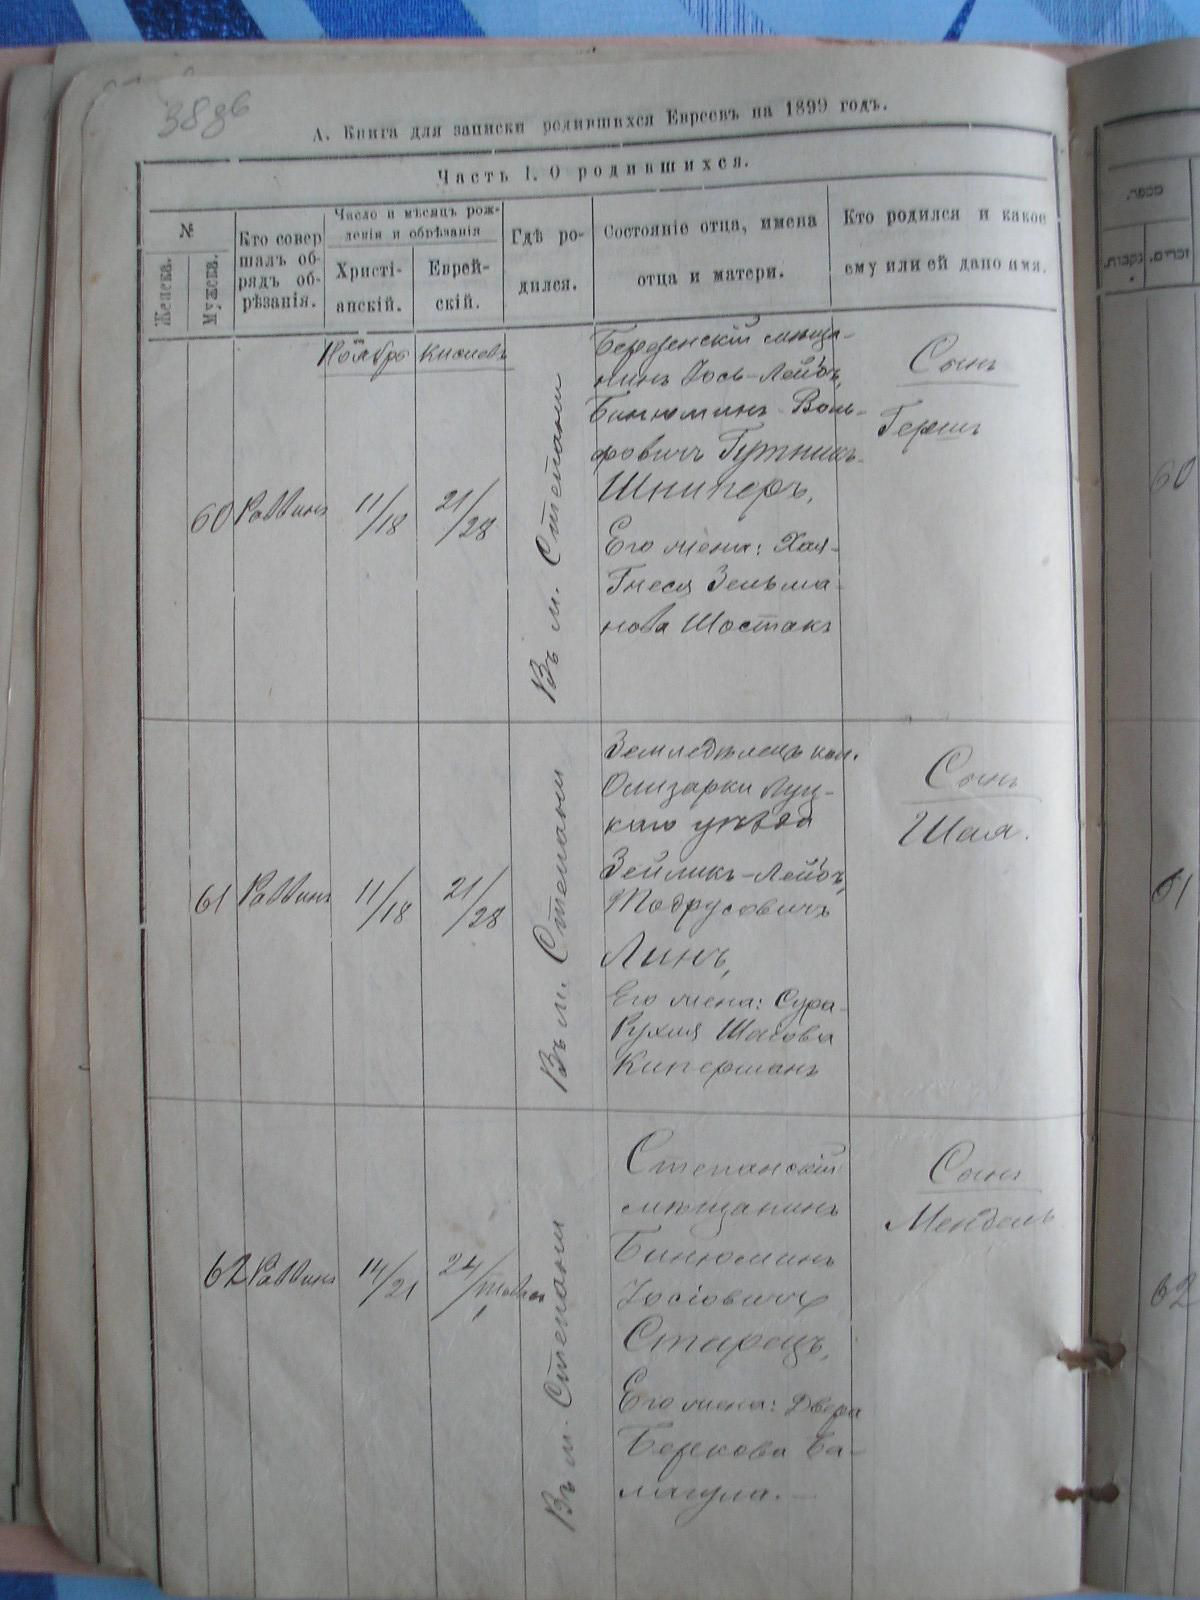 38 об
А. Книга для записки родившихся Евреевъ на 1899 годъ.
Часть I. О родившихся.
№
Женска.
Мужска.
Кто совер
шалъ об-
рядъ об-
рѣзанія.
Число и мѣсяцъ рож-
денія и обрѣзанія
Христі-
анскій.
Еврей-
скій.
Гдѣ ро-
дился.
Состояніе отца, имена
отца и матери.
Кто родился и какое
ему или ей дано имя.
Ноябрь
Кислевъ
60
Раввинъ
11/18
21/28
Въ м. Степани
Березенскій мѣща-
нинъ Іось-Лейбъ,
Бинюминъ Воль-
фовичъ Гутникъ-
Шниперъ,
Его жена: Хая-
Гнеся Зельма-
нова Шостакъ
Сынъ
Гершъ
61
Раввинъ
11/18
21/28
Въ м. Степани
Земледѣлецъ кол.
Олизарки Луц-
каго уѣзда
Зейликъ-Лейбъ,
Тодрусовичъ
Линъ,
Его жена: Сура-
Рухля Шаева
Киперманъ
Сынъ
Шая.
62
Раввинъ
14/21
24/
1
Въ м. Степани
Степанскій
мѣщанинъ
Бинюминъ
Іосіовичъ
Старецъ,
Его жена: Двера
Беркова Ба-
лагула.—
Сынъ
Мендель
60
61
62